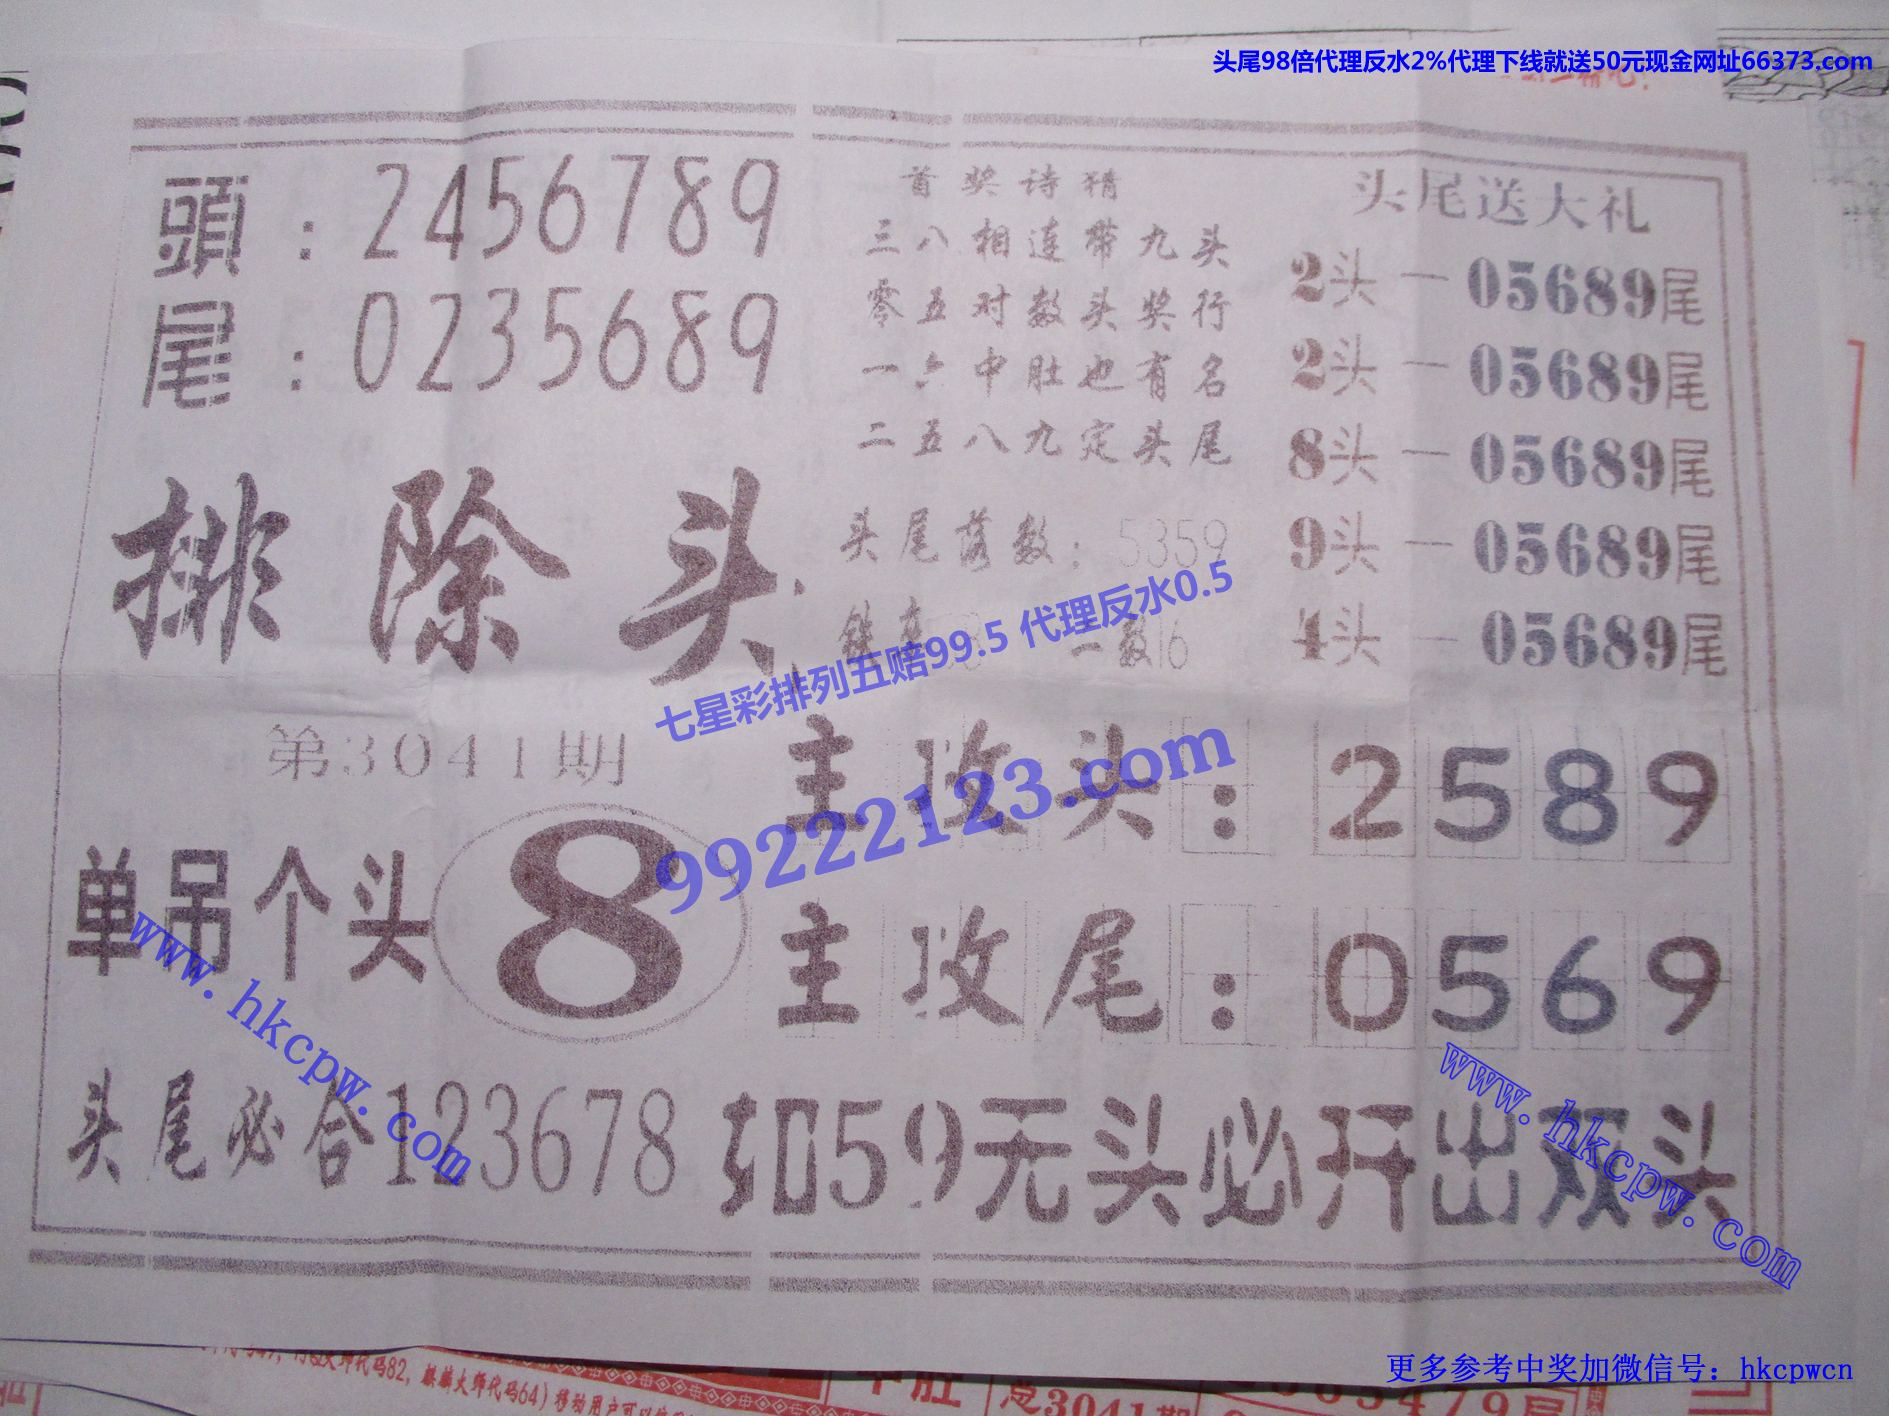 头尾98倍代理反水2%代理下线就送50元现金网址66373.com
頭：2456789
尾：0235689
排除头
首奖诗猜
三八相连带九头
零五对数头奖行
一六中肚也有名
二五八九定头尾
头尾落数：5359
一数16
头尾送大礼
2头一05689尾
2头一05689尾
8头一05689尾
9头一05689尾
4头一05689尾
七星彩排列五赔99.5 代理反水0.5
99222123.com
第3041期
单吊个头8
主攻头：2589
主攻尾：0569
头尾必合123678
如59无头必开出双头
www.hkcpw.com
www.hkcpw.com
更多参考中奖加微信号：hkcpwcn
麒麟大师代码64）移动用户可以
中肚
总3041期